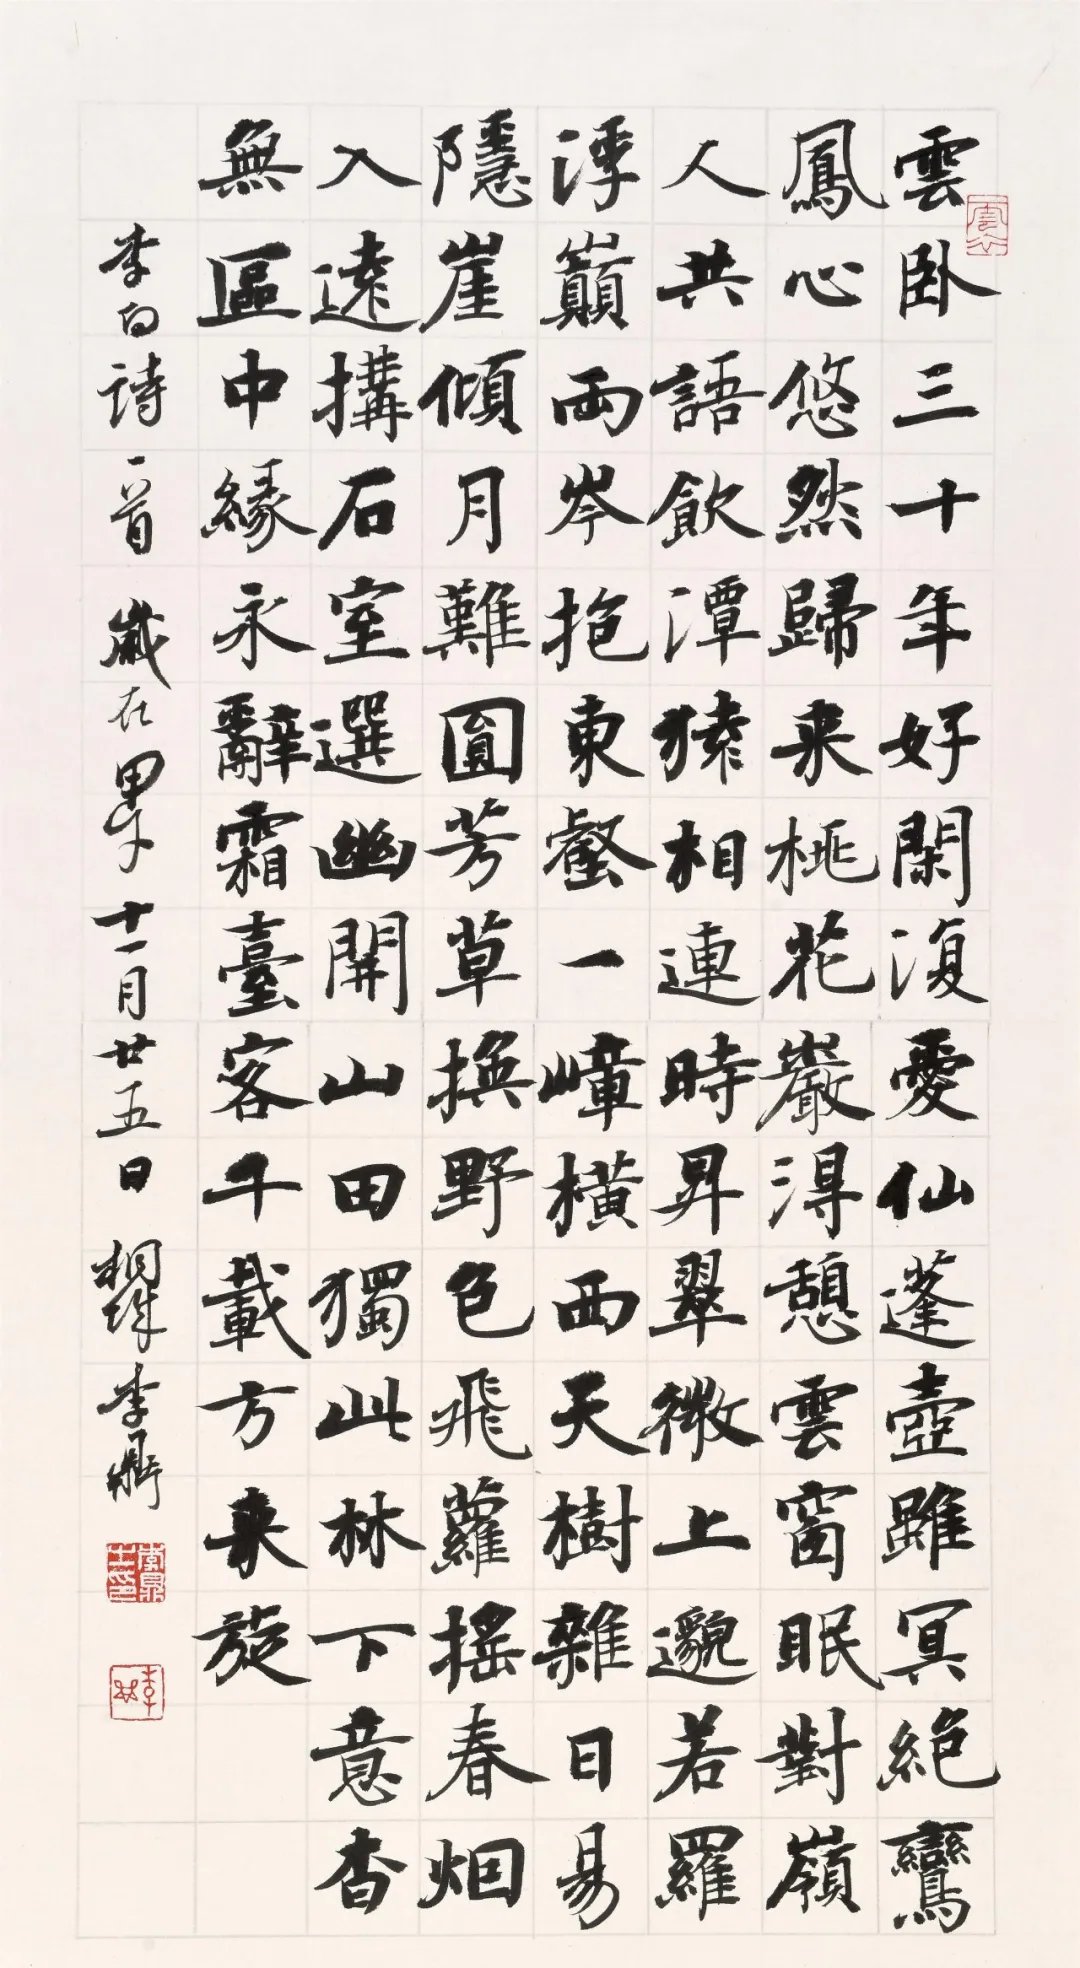 雲卧三十年好閑復愛仙蓬壺雖冥絶鸞
鳳心悠然歸来桃花巖得憩雲窗眠對嶺
人共語飲潭猿相連時昇翠微上邈若羅
浮巔兩岑抱東壑一嶂横西天樹雜日易
隱崖傾月難圓芳草換野色飛蘿摇春烟
入遠搆石室選幽開山田獨此林下意杳
無區中緣永辭霜臺客千載方来旋
李白詩一首 歲在甲午十一月廿五日 李鼎